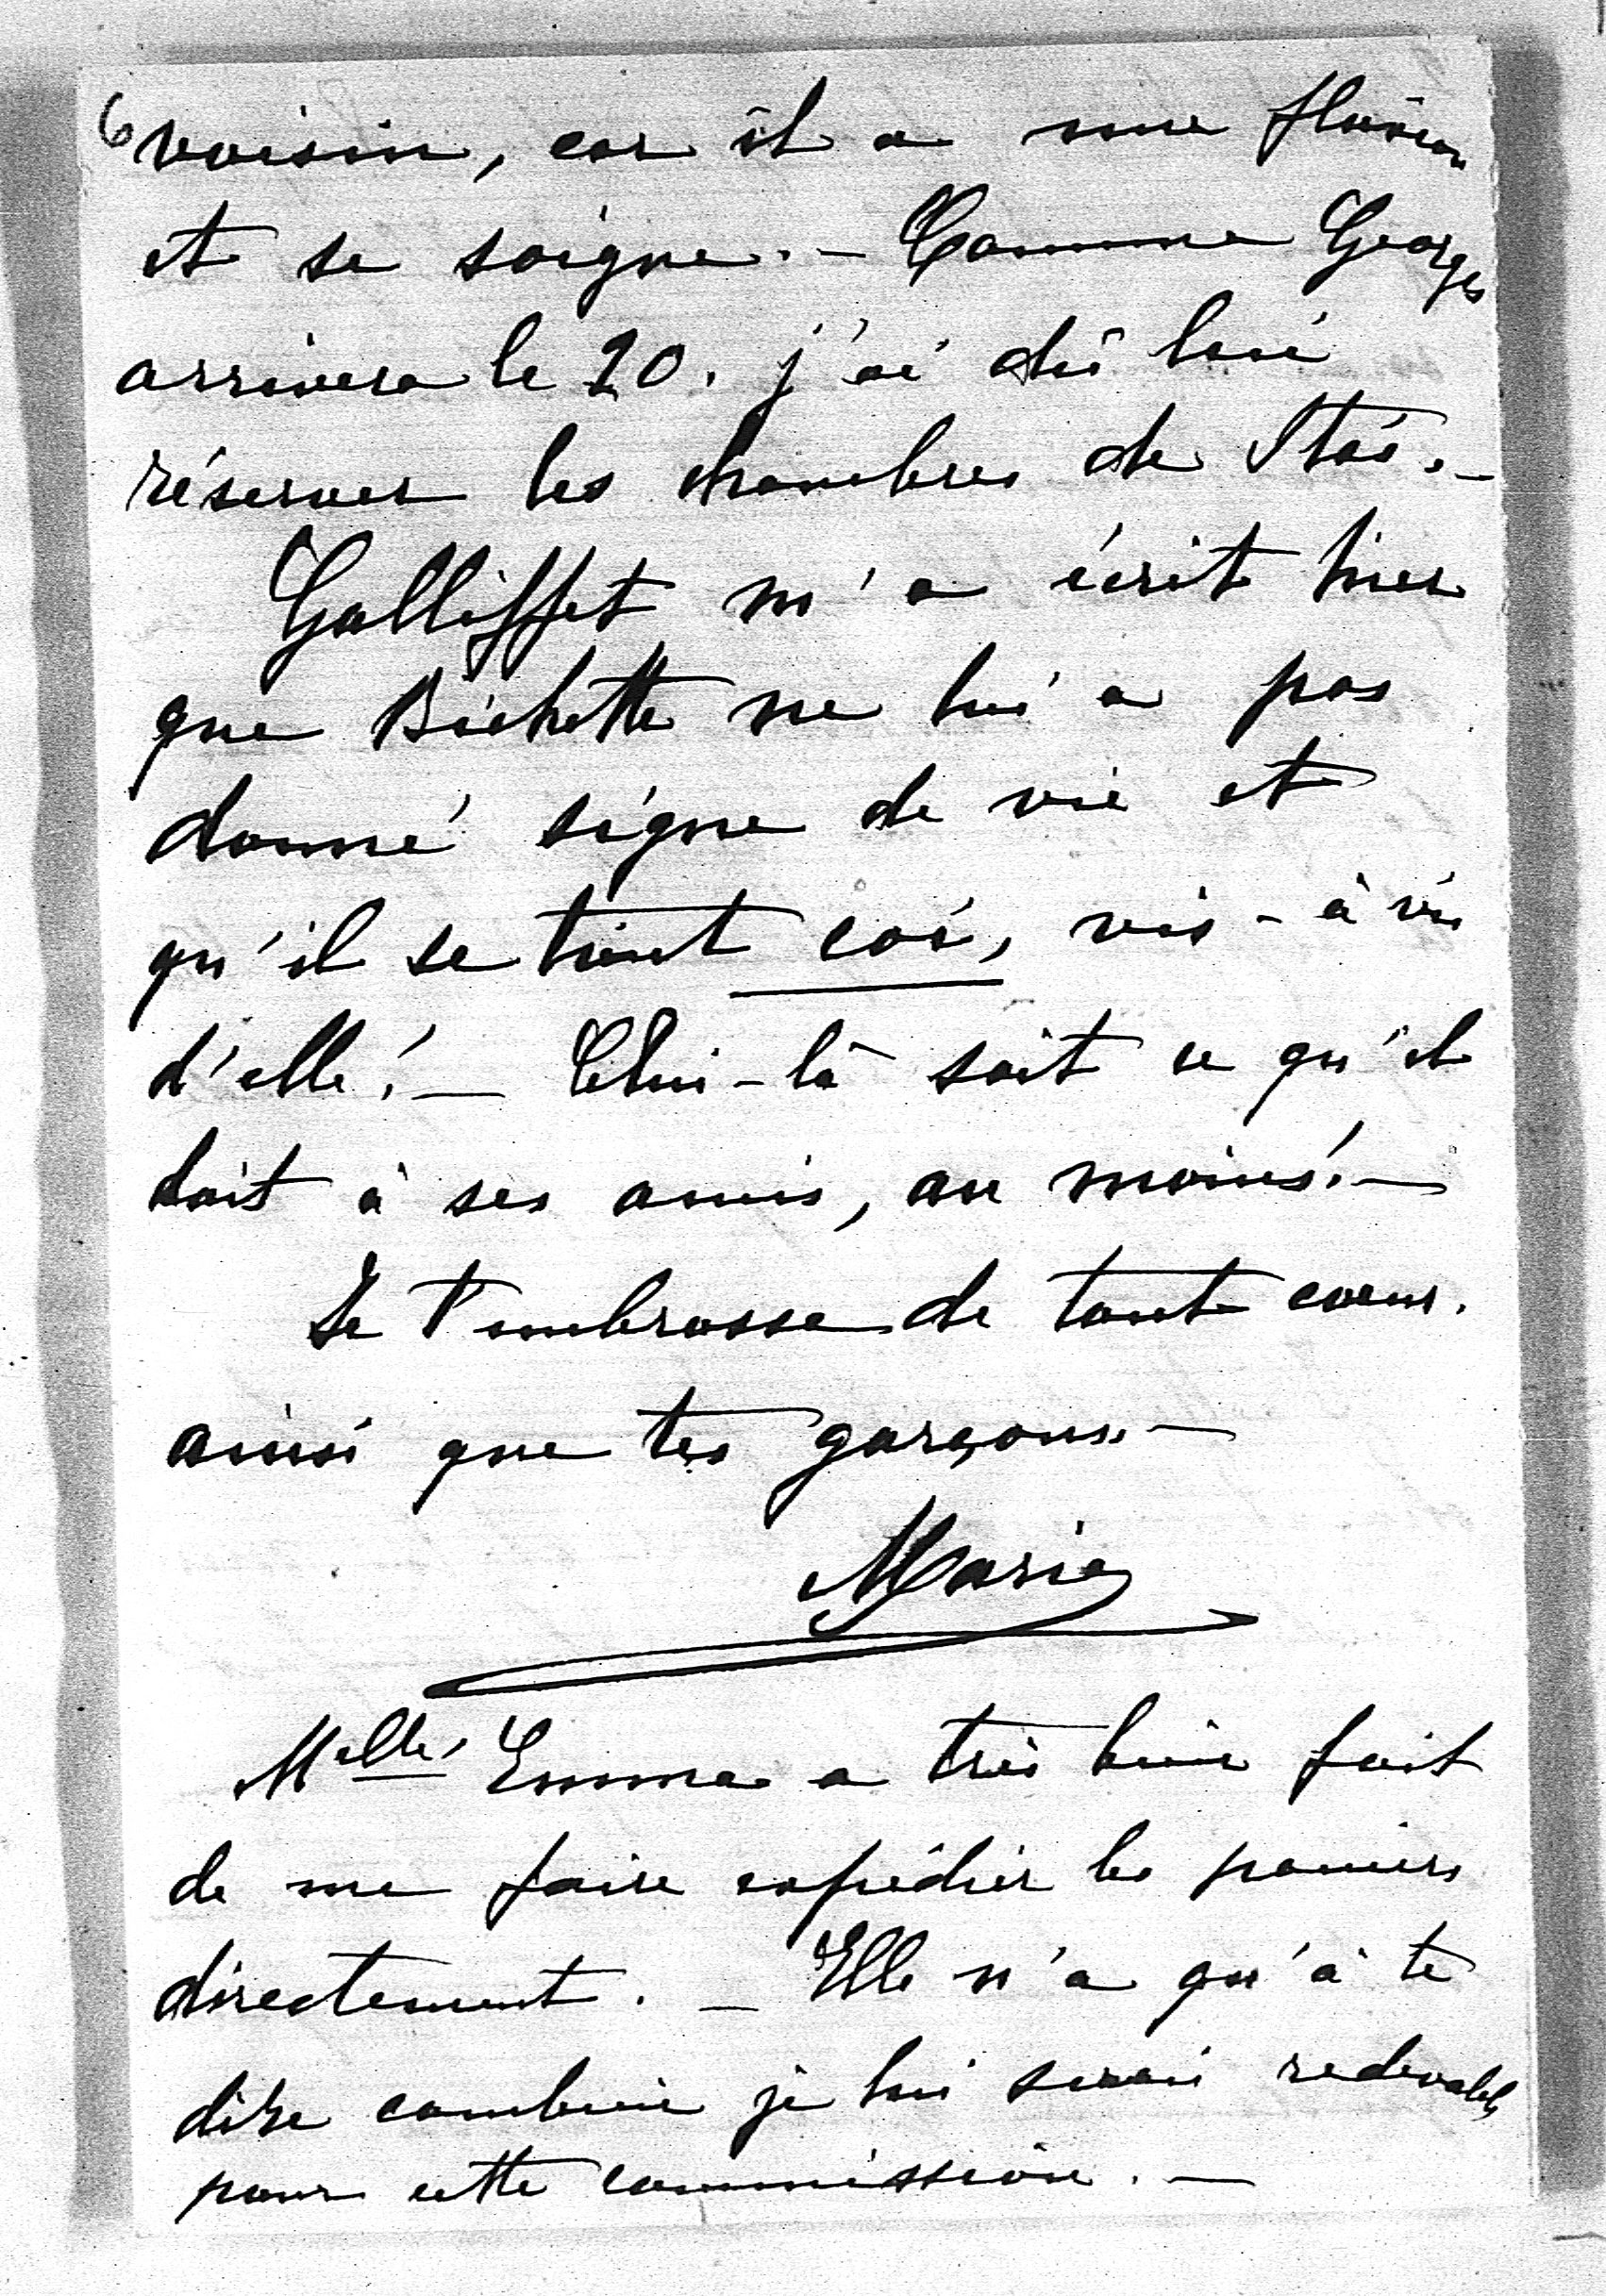 6
voisin, car il a une fluxion
et se soigne. — Comme Georges
arrivera le 20. j'ai dû lui
réserver les chambres de Stas. —
Galliffet m'a écrit hier
que Bichette ne lui a pas
donné signe de vie et
qu'il se tient coi, vis-à-vis
d'elle! — Celui-là sait ce qu'il
doit à ses amis, au moins! —
Je t'embrasse de tout cœur.
ainsi que tes garçons. —
Marie
Melle Emma a très bien fait
de me faire expédier les paniers
directement. — Elle n'a qu'à te
dire combien je lui serai redevable
pour cette commission. —